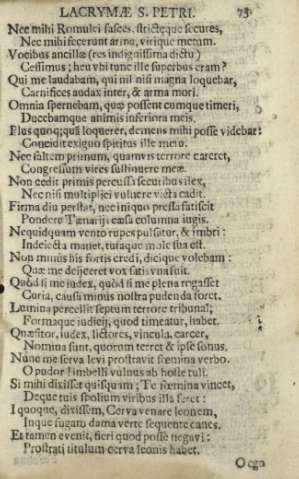 LACRYMÆ S. PETRI. 73
Nec mihi Romulei fasces, strictæque secures,
Nec mihi fecerunt arma, virique metum.
Vocibus ancillæ (res indignissima dictu)
Cessimus; heu vbi tunc ille superbus eram?
Qui me laudabam, qui nil nisi magna loquebar,
Carnifices audax inter, & arma mori.
Omnia spernebam, quæ possent cumque timeri,
Ducebamque animis inferiora meis.
Plus quoq; quã loquerer, demens mihi posse videbar:
Concidit exiguo spiritus ille metu.
Nec saltem primum, quamvis terrore careret,
Congressum vires sustinuere meæ.
Non cedit primis percussa securibus ilex,
Nec nisi multiplici vulnere victa cadit.
Firma diu perstat, nec iniquo pressa fatiscit
Pondere Tænarij cæsa columna iugis.
Nequidquam vento rupes pulsatur, & imbri:
Indeiecta manet, tutaque mole sua est.
Non minùs his fortis credi, dicique volebam:
Quæ me deijceret vox satis vna fuit.
Quòd si me iudex, quòd si me plena rogasset
Curia, causa minus nostra pudenda foret.
Lumina percellit septum terrore tribunal;
Formaque iudicij, quod timeatur, habet.
Quæsitor, iudex, lictores, vincula, carcer,
Nomina sunt, quorum terret & ipse sonus.
Nunc me serva levi prostravit fœmina verbo.
O pudor! imbelli vulnus ab hoste tuli.
Si mihi dixisset quisquam; Te fœmina vincet,
Deque tuis spolium viribus illa feret:
I quoque, dixissem, Cerva venare leonem,
Inque fugam dama verte sequente canes.
Et tamen evenit, fieri quod posse negavi:
Prostrati titulum cerva leonis habet.
O ego